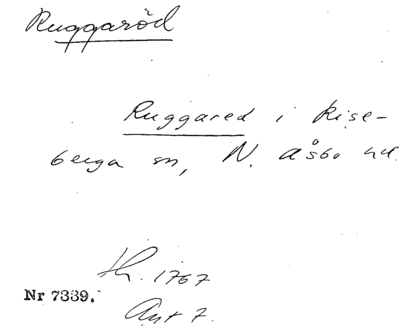 Ruggaröd
Ruggared i Rise-
berga sn, N. Åsbo hd.
Kh. 1767
Nr 7339.
Ant 7.